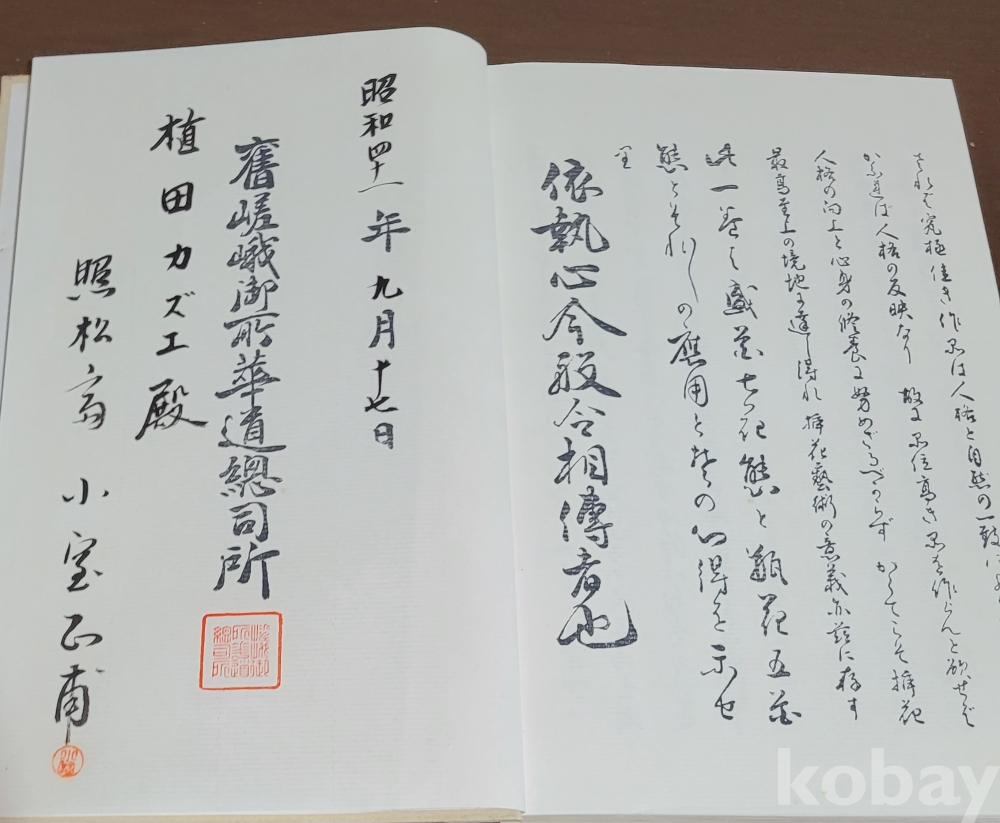 されば究極佳き作品は人格と自然の一致に
道は人格の反映なり 故に品位高き品を作らんと欲せば
人格の向上と心身の修養に努めざるべからず かくてこそ挿花
最高至上の境地に達し得れ 挿花藝術の意義亦茲に存す
此一巻は盛花七ヶ花態と瓶花五花
態とそれ〲の應用と其の心得を示せ
り
依執心今般令相傳者也
昭和四十一年九月十七日
舊嵯峨御所華道總司所
嵯峨御所華道總司所
植田カズエ殿
照松斎 小室正甫
kobay